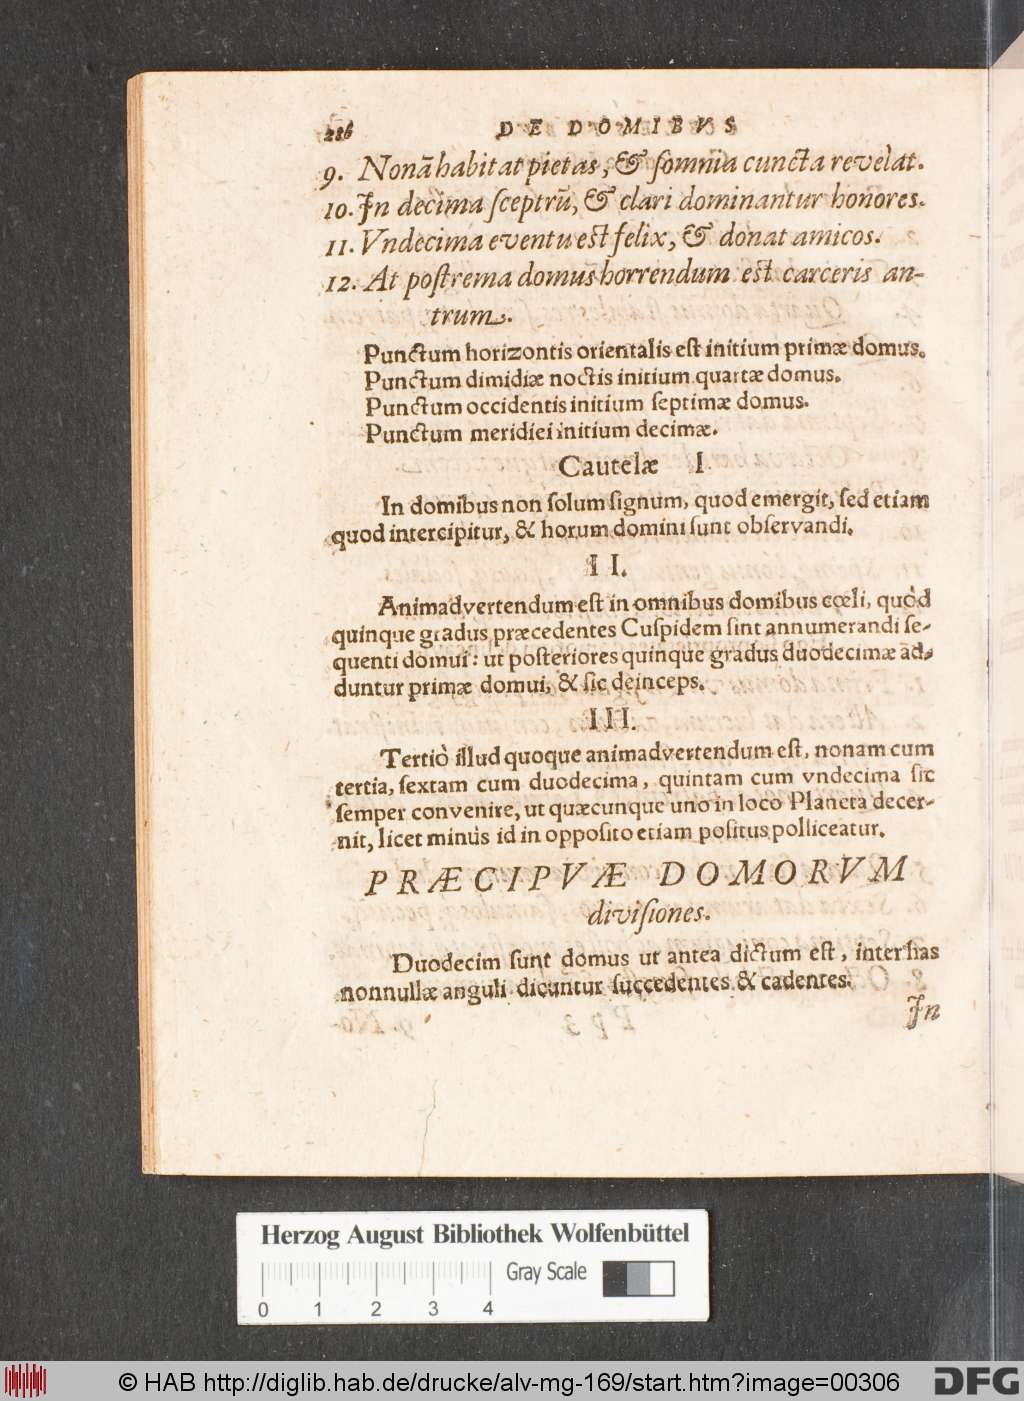 286 DE DOMIBVS
9. Nonā habitat pietas, & ſomnia cuncta revelat.
10. In decima ſceptrū, & clari dominantur honores.
11. Vndecima eventu eſt felix, & donat amicos.
12. At poſtrema domus horrendum eſt carceris an-
trum.
Punctum horizontis orientalis eſt initium primæ domus.
Punctum dimidiæ noctis initium quartæ domus.
Punctum occidentis initium ſeptimæ domus.
Punctum meridiei initium decimæ.
Cautelæ I.
In domibus non ſolum ſignum, quod emergit, ſed etiam
quod intercipitur, & horum domini ſunt obſervandi.
II.
Animadvertendum eſt in omnibus domibus cœli, quòd
quinque gradus præcedentes Cuſpidem ſint annumerandi ſe-
quenti domui: ut poſteriores quinque gradus duodecimæ ad-
duntur primæ domui, & ſic deinceps.
III.
Tertiò illud quoque animadvertendum eſt, nonam cum
tertia, ſextam cum duodecima, quintam cum vndecima ſic
ſemper convenire, ut quæcunque uno in loco Planeta decer-
nit, licet minus id in oppoſito etiam poſitus polliceatur.
PRÆCIPVÆ DOMORVM
diviſiones.
Duodecim ſunt domus ut antea dictum eſt, inter has
nonnullæ anguli dicuntur ſuccedentes & cadentes.
In
Herzog August Bibliothek Wolfenbüttel
Gray Scale
0 1 2 3 4
© HAB http://diglib.hab.de/drucke/alv-mg-169/start.htm?image=00306
DFG